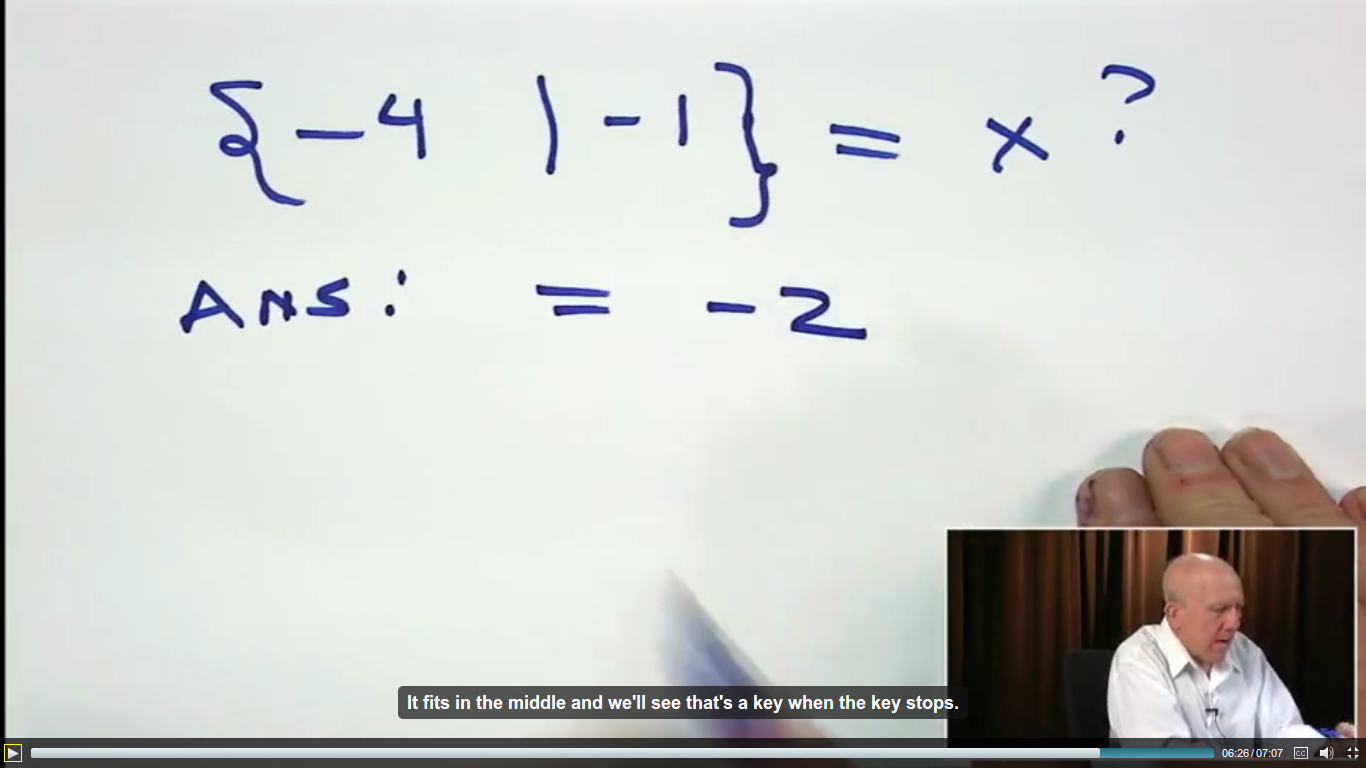 {-4 | -1} = x ?
Ans: = -2
It fits in the middle and we'll see that's a key when the key stops.
06:26 / 07:07 CC